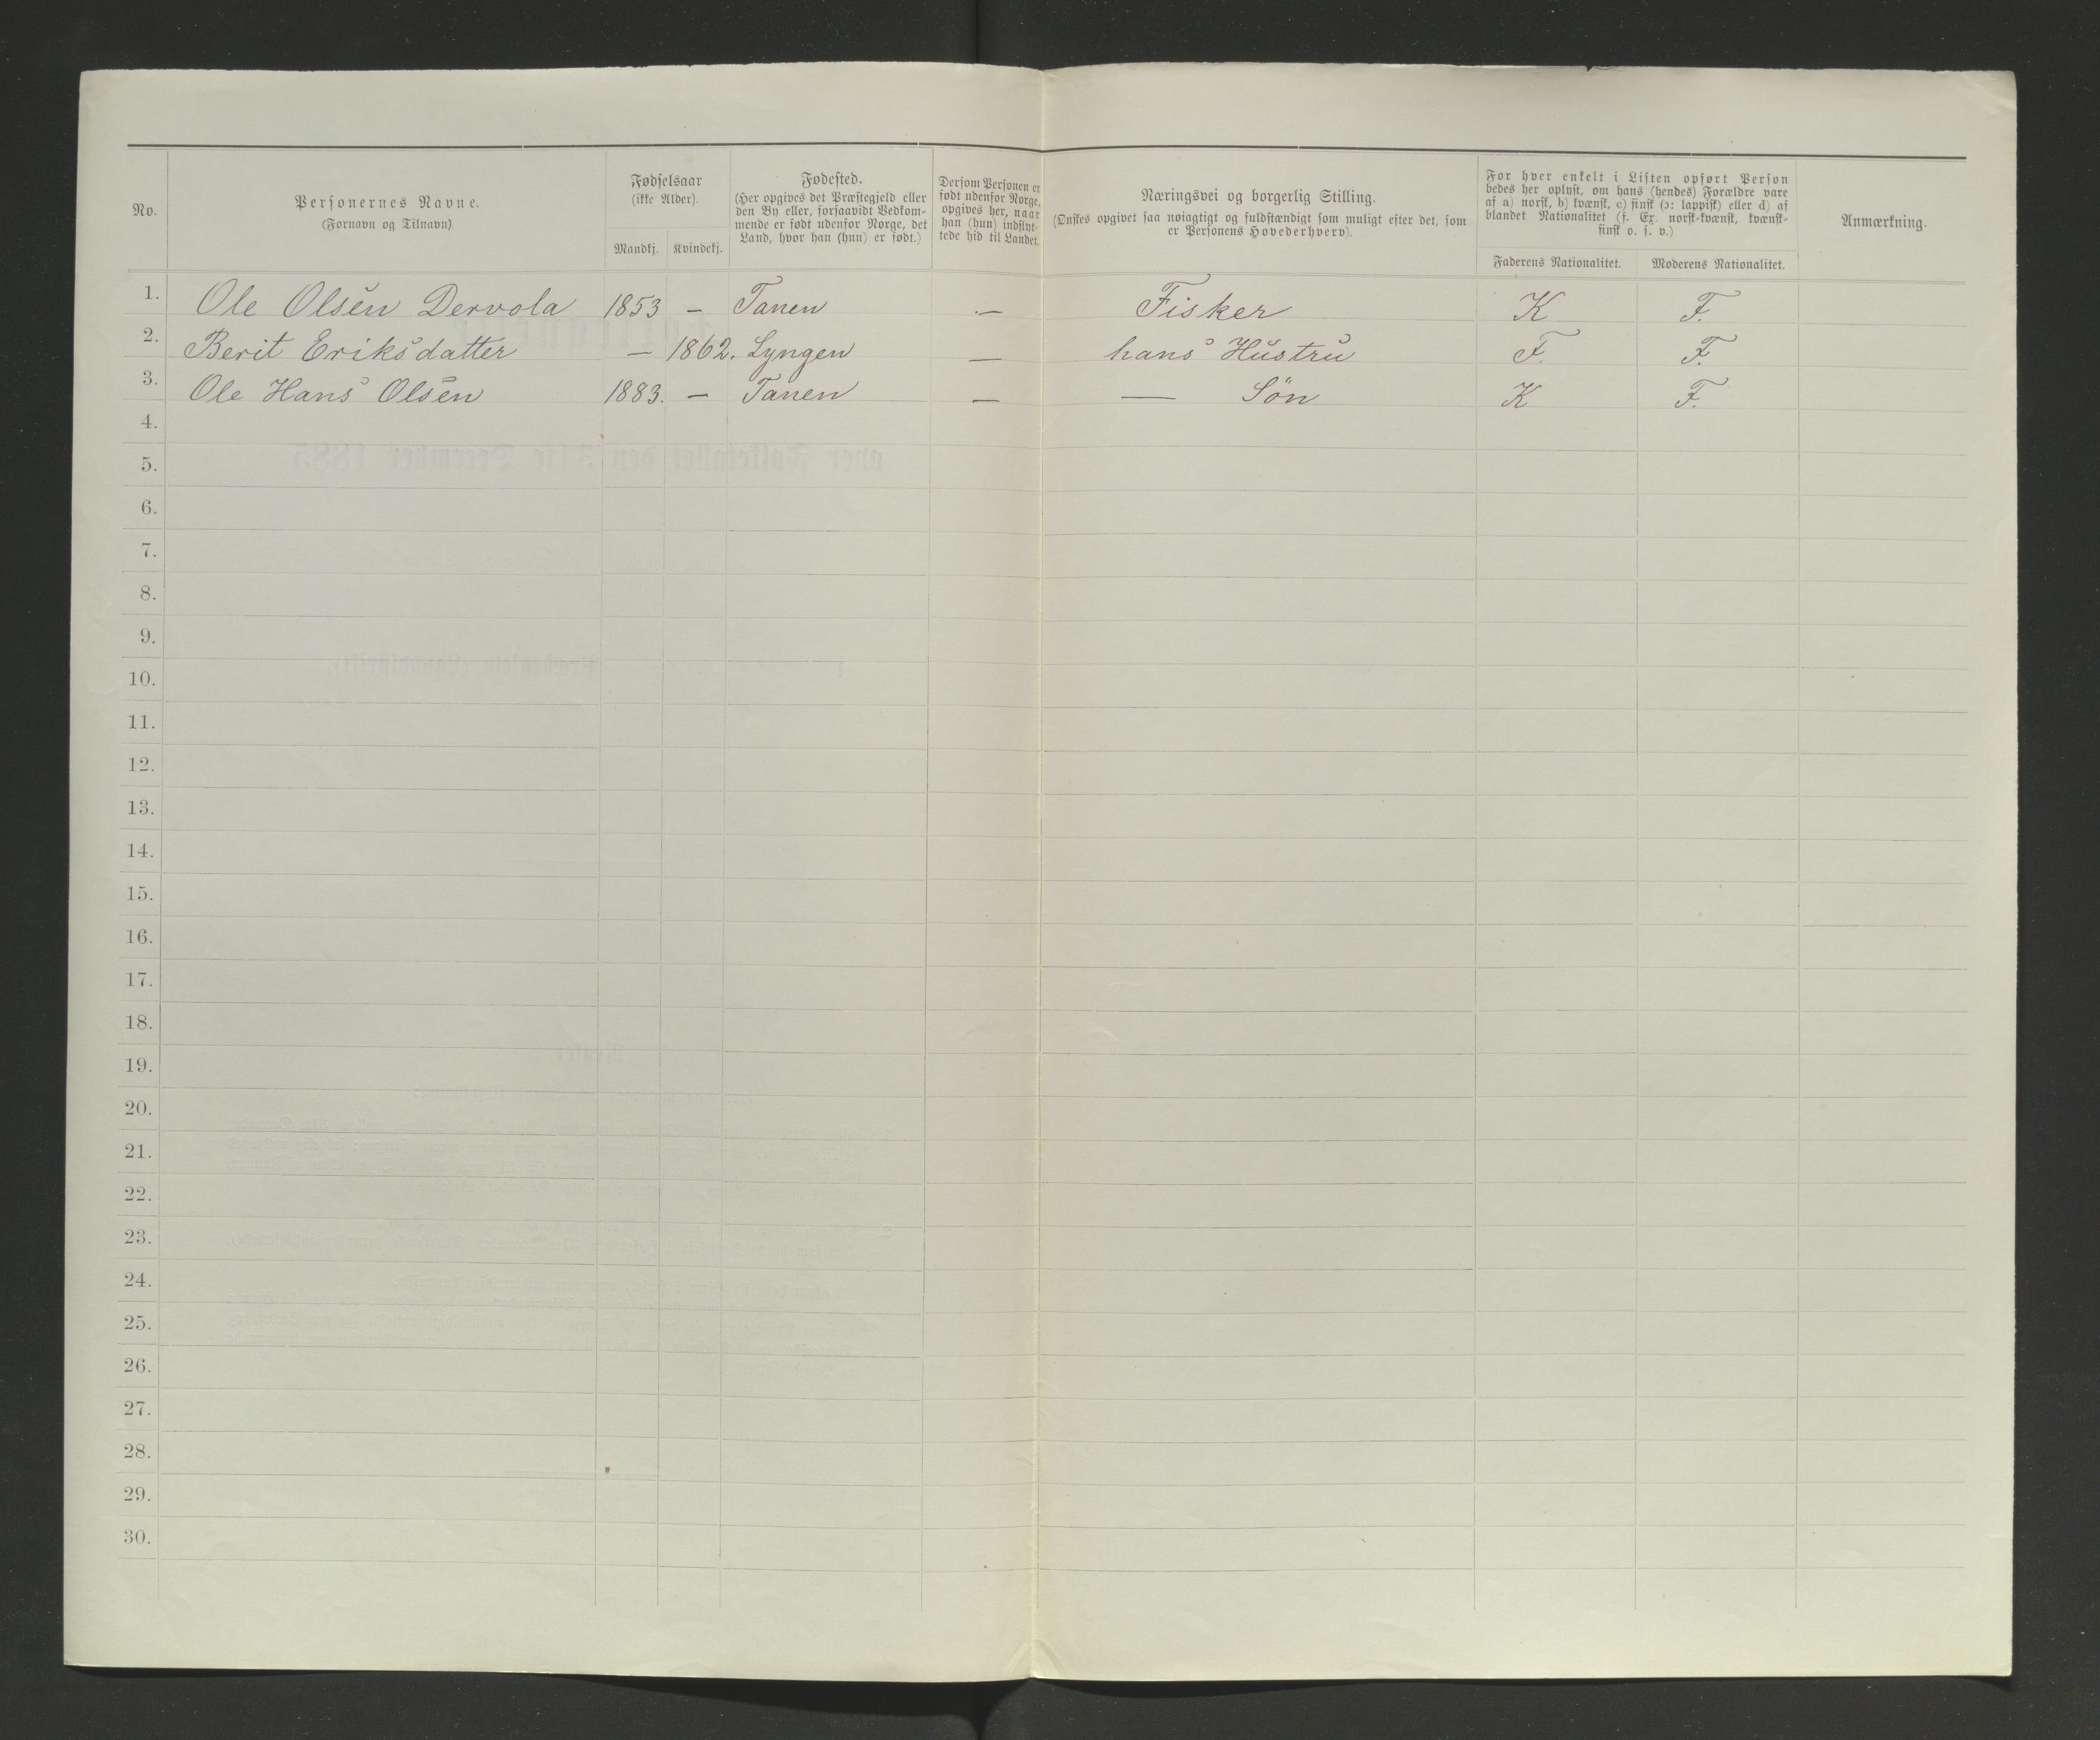 No.
Personernes Navne.
(Fornavn og Tilnavn)
Fødselsaar
(ikke Alder).
Mandkj. Kvindekj.
Fødested.
(Her opgives det Præstegjeld eller
den By eller, forsaavidt Vedkom-
mende er født udenfor Norge, det
Land, hvor han (hun) er født.)
Dersom Personen er
født udenfor Norge,
opgives her, naar
han (hun) indflyt-
tede hid til Landet.
Næringsvei og borgerlig Stilling.
(Ønskes opgivet saa nøiagtigt og fuldstændigt som muligt efter det, som
er Personens Hovederhverv).
For hver enkelt i Listen opført Person
bedes her oplyst, om hans (hendes) Forældre vare
af a) norsk, b) kvænsk, c) finsk (ɔ: lappisk) eller d) af
blandet Nationalitet (f. Ex. norsk-kvænsk, kvænsk-
finsk o. s. v.)
Faderens Nationalitet. Moderens Nationalitet.
Anmærkning.
1. Ole Olsen Dervola 1853 — Tanen — Fisker K F.
2. Berit Eriksdatter — 1862. Lyngen — hans Hustru F. F.
3. Ole Hans Olsen 1883. — Tanen — — Sön K F.
4.
5.
6.
7.
8.
9.
10.
11.
12.
13.
14.
15.
16.
17.
18.
19.
20.
21.
22.
23.
24.
25.
26.
27.
28.
29.
30.